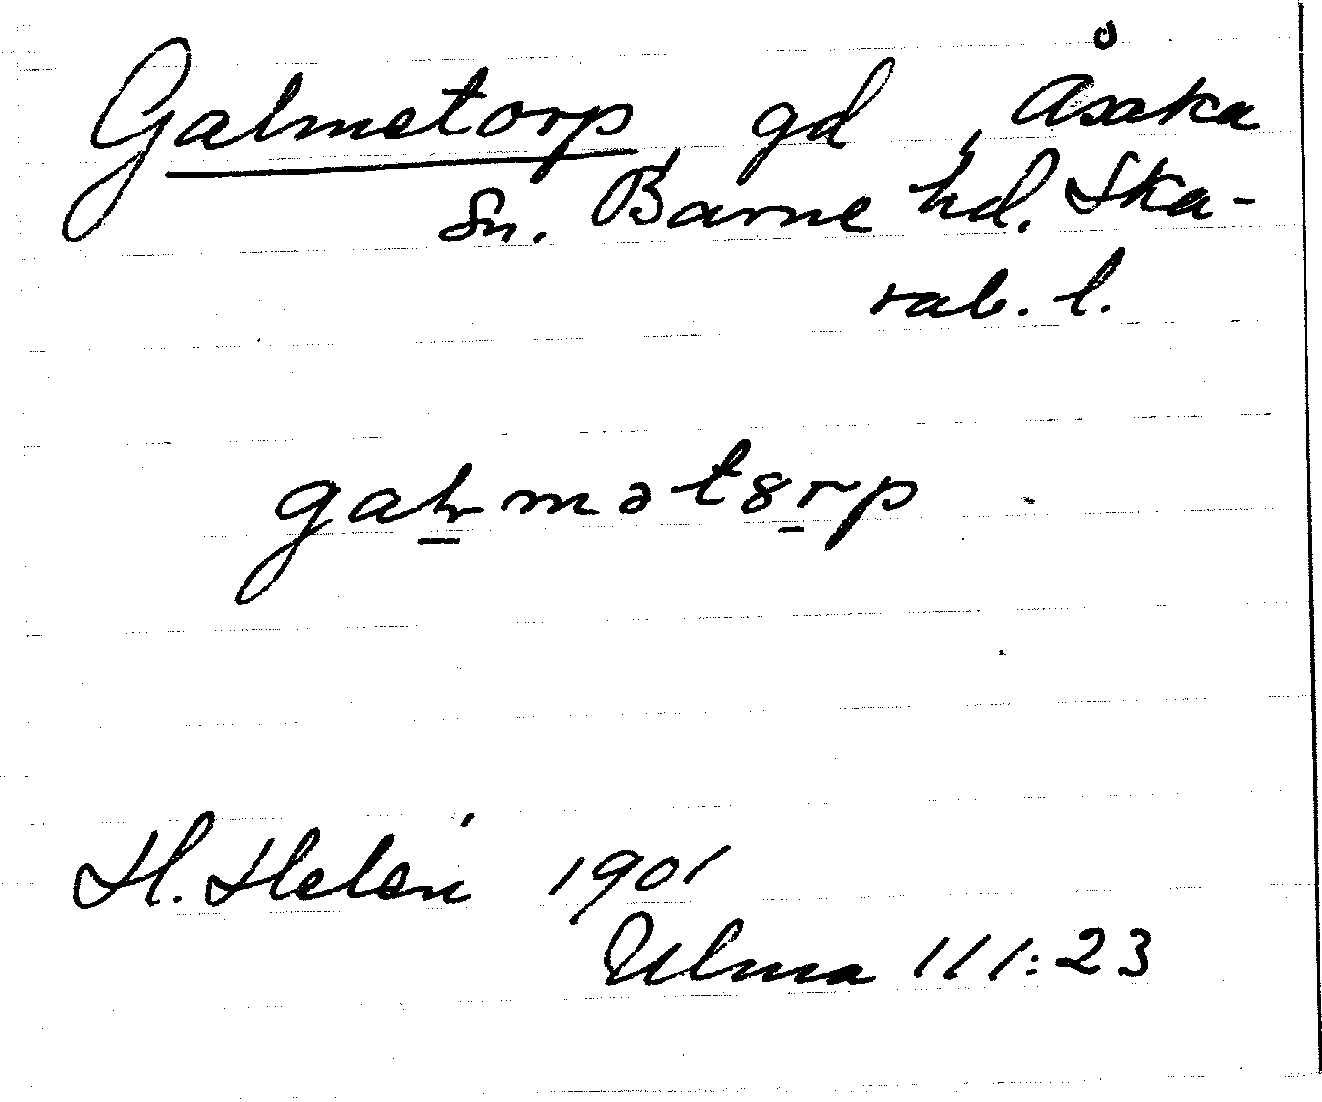 Galmetorp, gd, Åsaka
Sn. Barne hd. Ska-
rab. l.
H. Helén 1901
Ulma 111:23